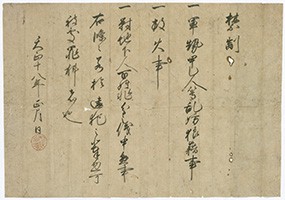 禁制
一軍勢甲乙人等乱妨狼藉事
一放火事
一対地下人百姓非分之儀申懸事
右條々若於違犯之輩者忽可
被處罪科者也
天正十八年正月日